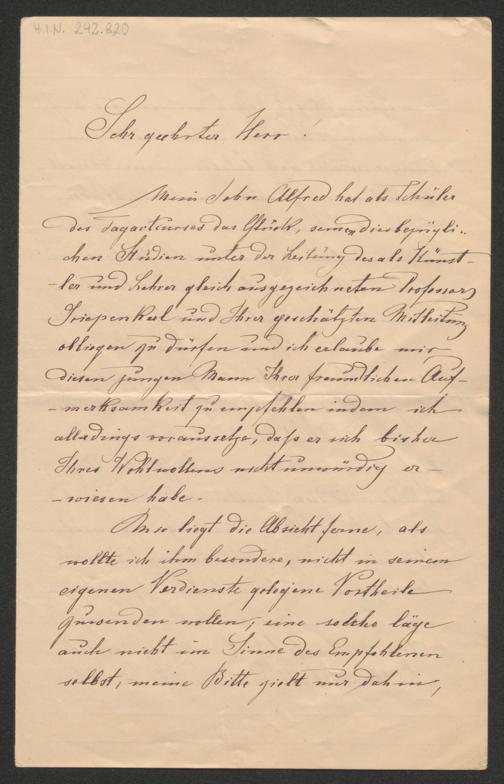 H.I.N. 242.820
Sehr geehrter Herr!
Mein Sohn Alfred hat als Schüler
des Tagescurses das Glück, seinen diesbezügli-
chen Studien unter der Leitung des als Künst-
-ler und Lehrer gleich ausgezeichneten Professors
Griepenkerl und Ihrer geschätzten Mitleitung
obliegen zu dürfen und ich erlaube mir
diesen jungen Mann Ihrer freundlichen Auf-
-merksamkeit zu empfehlen indem ich
allerdings voraussetze, daß er sich bisher
Ihres Wohlwollens nicht unwürdig er-
-wiesen habe.
Mir liegt die Absicht ferne, als
wollte ich ihm besondere, nicht in seinem
eigenen Verdienste gelegene Vortheile
zuwenden wollen; eine solche läge
auch nicht im Sinne des Empfohlenen
selbst, meine Bitte zielt nur dahin,